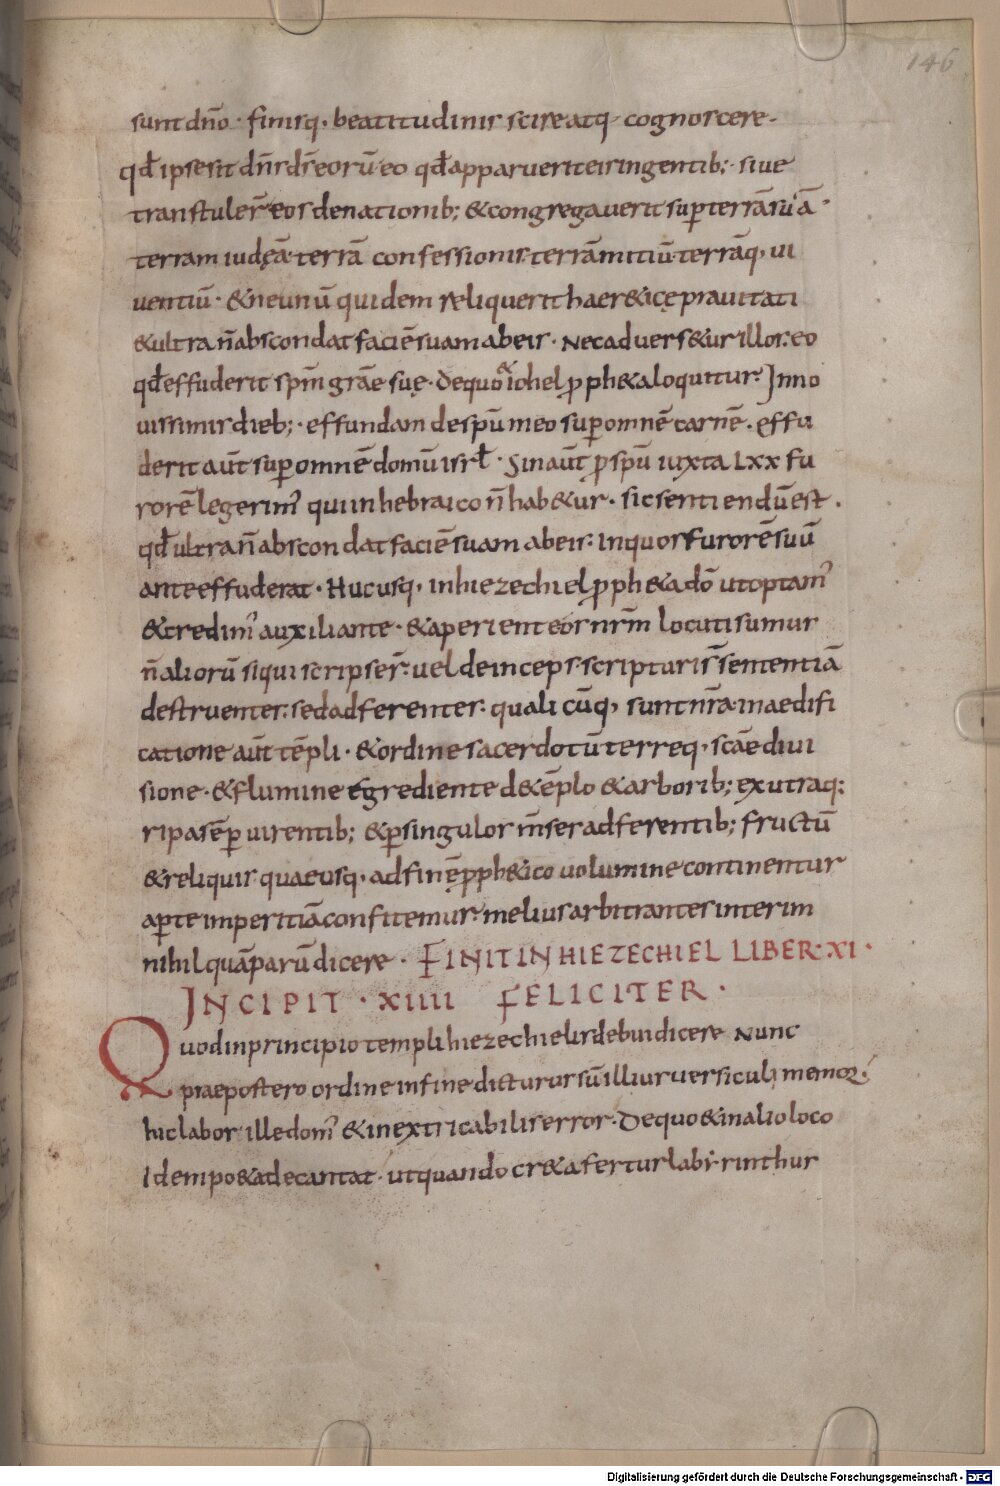 146
sunt dño · finisq, beatitudinis scire atq, cognoscere ·
qđ ipse sit dñs ds̄ eorū eo qđ apparuerit eis in gentib; · siue
transtuler̄ eos de nationib; & congregauerit sup terrā suā ·
terram iudęā · terrā confessionis · terrā mitiū · terrāq, ui
uentiū · & ne unū quidem reliquerit haer&icę prauitati
& ultra ñ abscondat faciē suam ab eis · Nec aduers&ur illos · eo
qđ effuderit spm̄ grāe suę · De quo & iohel pph&a loquitur · In no
uissimis dieb; · effundam de spū meo sup omnē carnē · effu
derit aūt sup omnē domū isrł · Sin aūt p spū iuxta LXX fu
rorē legerim' qui in hebraico ñ hab&ur · sic sentiendū est ·
qđ ultra ñ abscondat faciē suam ab eis · in quos furorē suū
ante effuderat · Hucusq, in hiezechiel pph&a dō ut optam'
& credim' auxiliante · & aperiente os nrm̄ locuti sumus
ñ aliorū si qui scripser̄ · uel deinceps scripturis sententiā
destruentes · sed adferentes · qualicūq, sunt nrā · in aedifi
catione aūt tēpli · & ordine sacerdotū terreq, scāe diui
sione · & flumine egrediente de tēplo & arborib; ex utraq;
ripa sēp uirentib; & p singulos m̄ses adferentib; fructū
& reliquis quae usq, ad finē pph&ico uolumine continentur
apte imperitiā confitemur · melius arbitrantes interim
nihil quā parū dicere · FINIT IN HIEZECHIEL LIBER · XI ·
INCIPIT · XIIII FELICITER ·
Quod in principio templi hiezechielis debui dicere Nunc
praepostero ordine in fine dicturus sū illius uersiculi memor ·
hic labor ille dom' & inextricabilis error · De quo & in alio loco
Idem po&a decantat · ut quando cr&a fertur labyrinthus
Digitalisierung gefördert durch die Deutsche Forschungsgemeinschaft - DFG